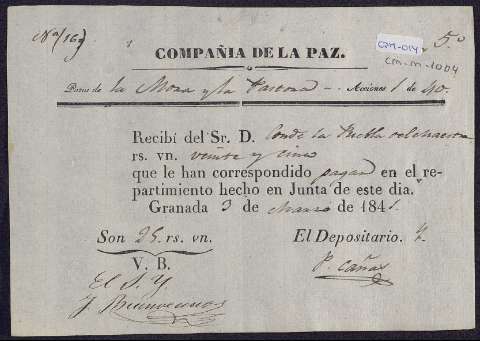 5º
CM-014
CM-M-1004
COMPAÑIA DE LA PAZ.
Pozos de la Mona y la Pastora Acciones 1 de 40.
Recibí del Sr. D. Conde la Puebla del Maestre
rs. vn. veinte y cinco
que le han correspondido pagar en el re-
partimiento hecho en Junta de este dia.
Granada 3 de Marzo de 1841.
Son 25. rs. vn. El Depositario.
V. B.
P. Cañas
El S. Y.